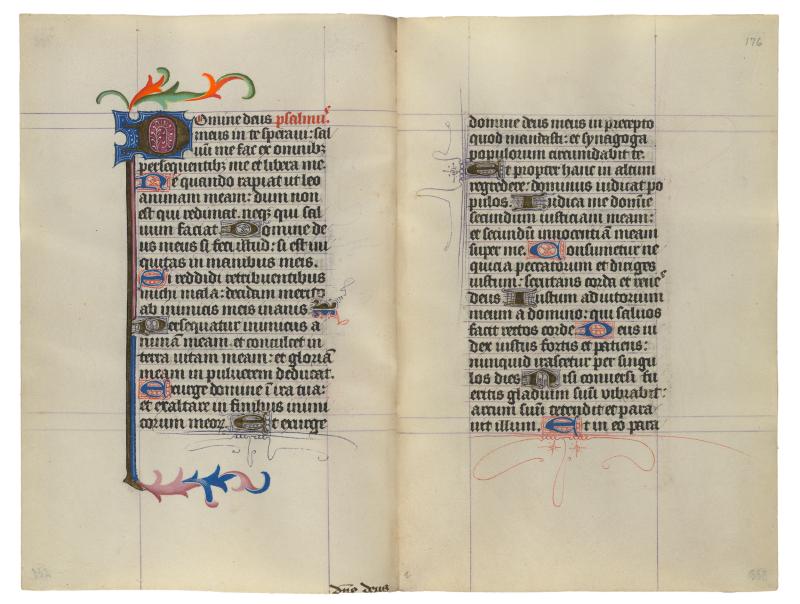 Domine deus psalmus
meus in te speraui: sal
uū me fac ex omnibꝫ
persequentibꝫ me et libera me.
Ne quando rapiat ut leo
animam meam: dum non
est qui redimat. neqꝫ qui sal
uum faciat Domine de
us meus si feci istud: si est ini
quitas in manibus meis.
Si reddidi retribuentibus
michi mala: decidam merito
ab inimicis meis inanis
Persequatur inimicus a
nimā meam. et conculcet in
terra uitam meam: et gloriā
meam in puluerem deducat.
Exurge domine ī ira tua:
et exaltare in finibus inimi
corum meoꝝ. Et exurge
dn̄e deus
176
domine deus meus in precepto
quod mandasti: et synagoga
populorum circumdabit te.
Et propter hanc in altum
regredere: dominus iudicat po
pulos. Iudica me domīe
secundum iusticiam meam:
et secundū innocentiā meam
super me. Consumetur ne
quicia peccatorum et diriges
iustum: scrutans corda et renes
deus Iustum adiutorium
meum a domino: qui saluos
facit rectos corde Deus iu
dex iustus fortis et patiens:
nunquid irascetur per singu
los dies Nisi conuersi fu
eritis gladium suū vibrabit:
arcum suū tetendit et para
uit illum. Et in eo para